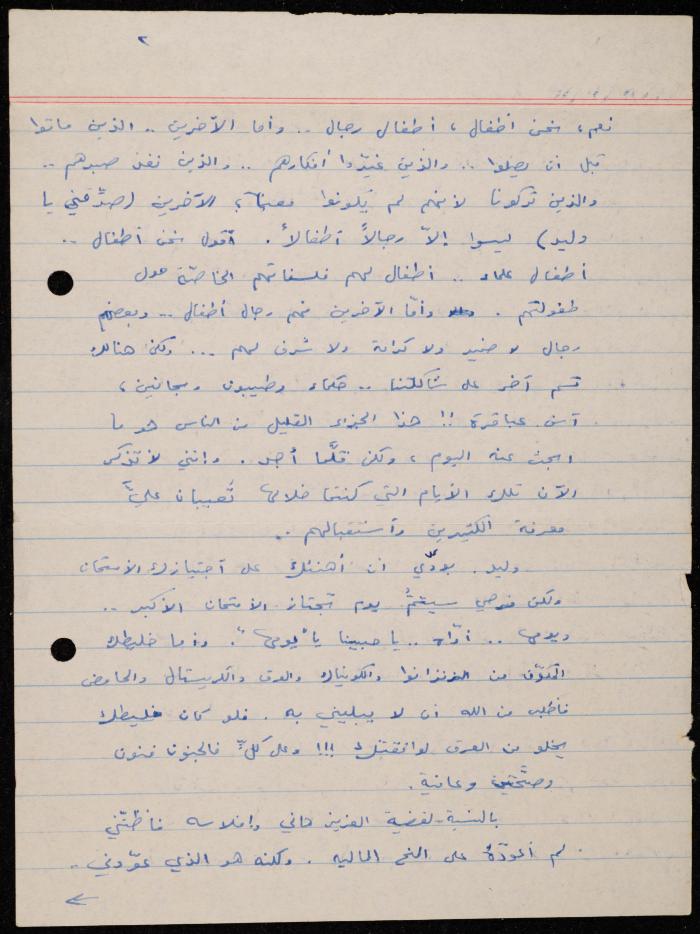 ٢
نعم، نحن أطفال، أطفال رجال .. وأما الآخرين .. الذين ماتوا
قبل ان يصلوا .. والذين غيّروا أفكارهم .. والذين نفذ صبرهم ..
والذين تركونا لانهم لم يكونوا معنا، الآخرين (صدّقني يا
وليد) ليسوا إلاّ رجالاً أطفالاً. أقول نحن أطفال ..
أطفال علماء .. أطفال لهم فلسفاتهم الخاصّة حول
طفولتهم . وأمّا الآخرين فهم رجال أطفال .. وبعضهم
رجال لا ضمير ولا كرامة ولا شرف لهم ... ولكن هنالك
قسم آخر على شاكلتنا .. حكماء وطيبون ومجانين،
عباقرة !! هذا الجزاء القليل من الناس هو ما
ابحث عنه اليوم، ولكن قلَّما أجد . وإنني لأتذكر
الآن تلك الأيام التي كنتما خلالها تُعيبان عليَّ
معرفة الكثيرين وأستقبالهم ..
وليد. بودّي ان أهنئك على أجتيازك الامتحان
ولكن فرحي سيتمُّ يوم تجتاز الامتحان الأكبر ..
ويومها .. أوّاه .. يا حبيبنا يا "يومها". وأما خليطك
المكوّن من الفنزانوا والكونياك والعرق والكريستال والحامض
فاطلب من الله ان لا يبليني به . فلو كان خليطك
يخلو من العرق لوافقتك !!! وعلى كلٍّ فالجنون فنون
وصحّتين وعافية.
بالنسبة لقضية العزيز هاني وإفلاسه فاظنّني
لم أعوّدهُ على النح الماليه . ولكنه هو الذي عوّدني ..